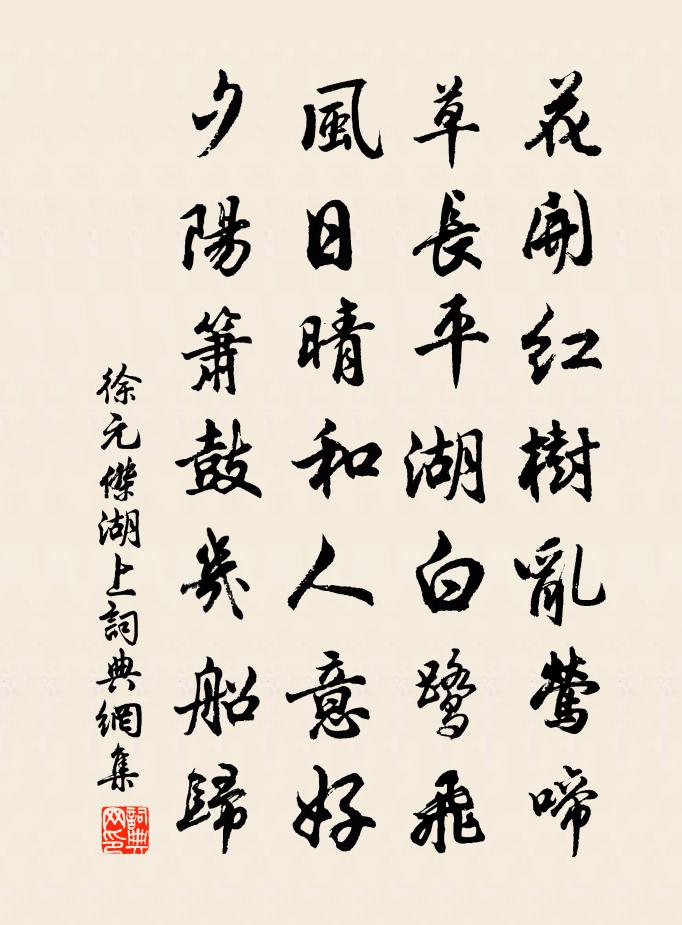 花開紅樹亂鶯啼
草長平湖白鷺飛
風日晴和人意好
夕陽簫鼓幾船歸
徐元傑湖上詞典網集
詞典网印